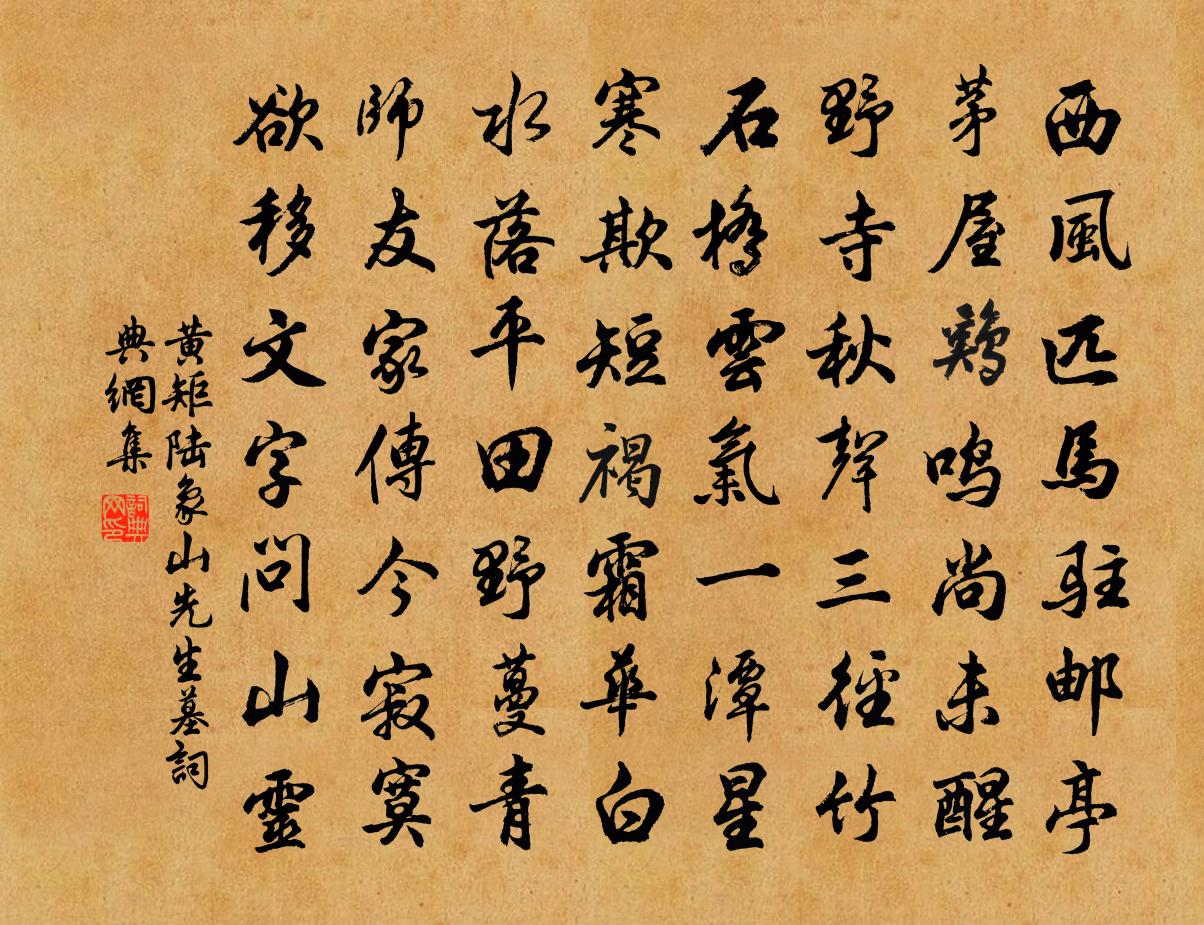 西風匹馬駐邮亭
茅屋鷄鳴尚未醒
野寺秋聲三徑竹
石橋雲氣一潭星
寒欺短褐霜華白
水落平田野蔓青
師友家傳今寂寞
欲移文字問山靈
黃矩陸象山先生墓詞
典網集
詞典網印